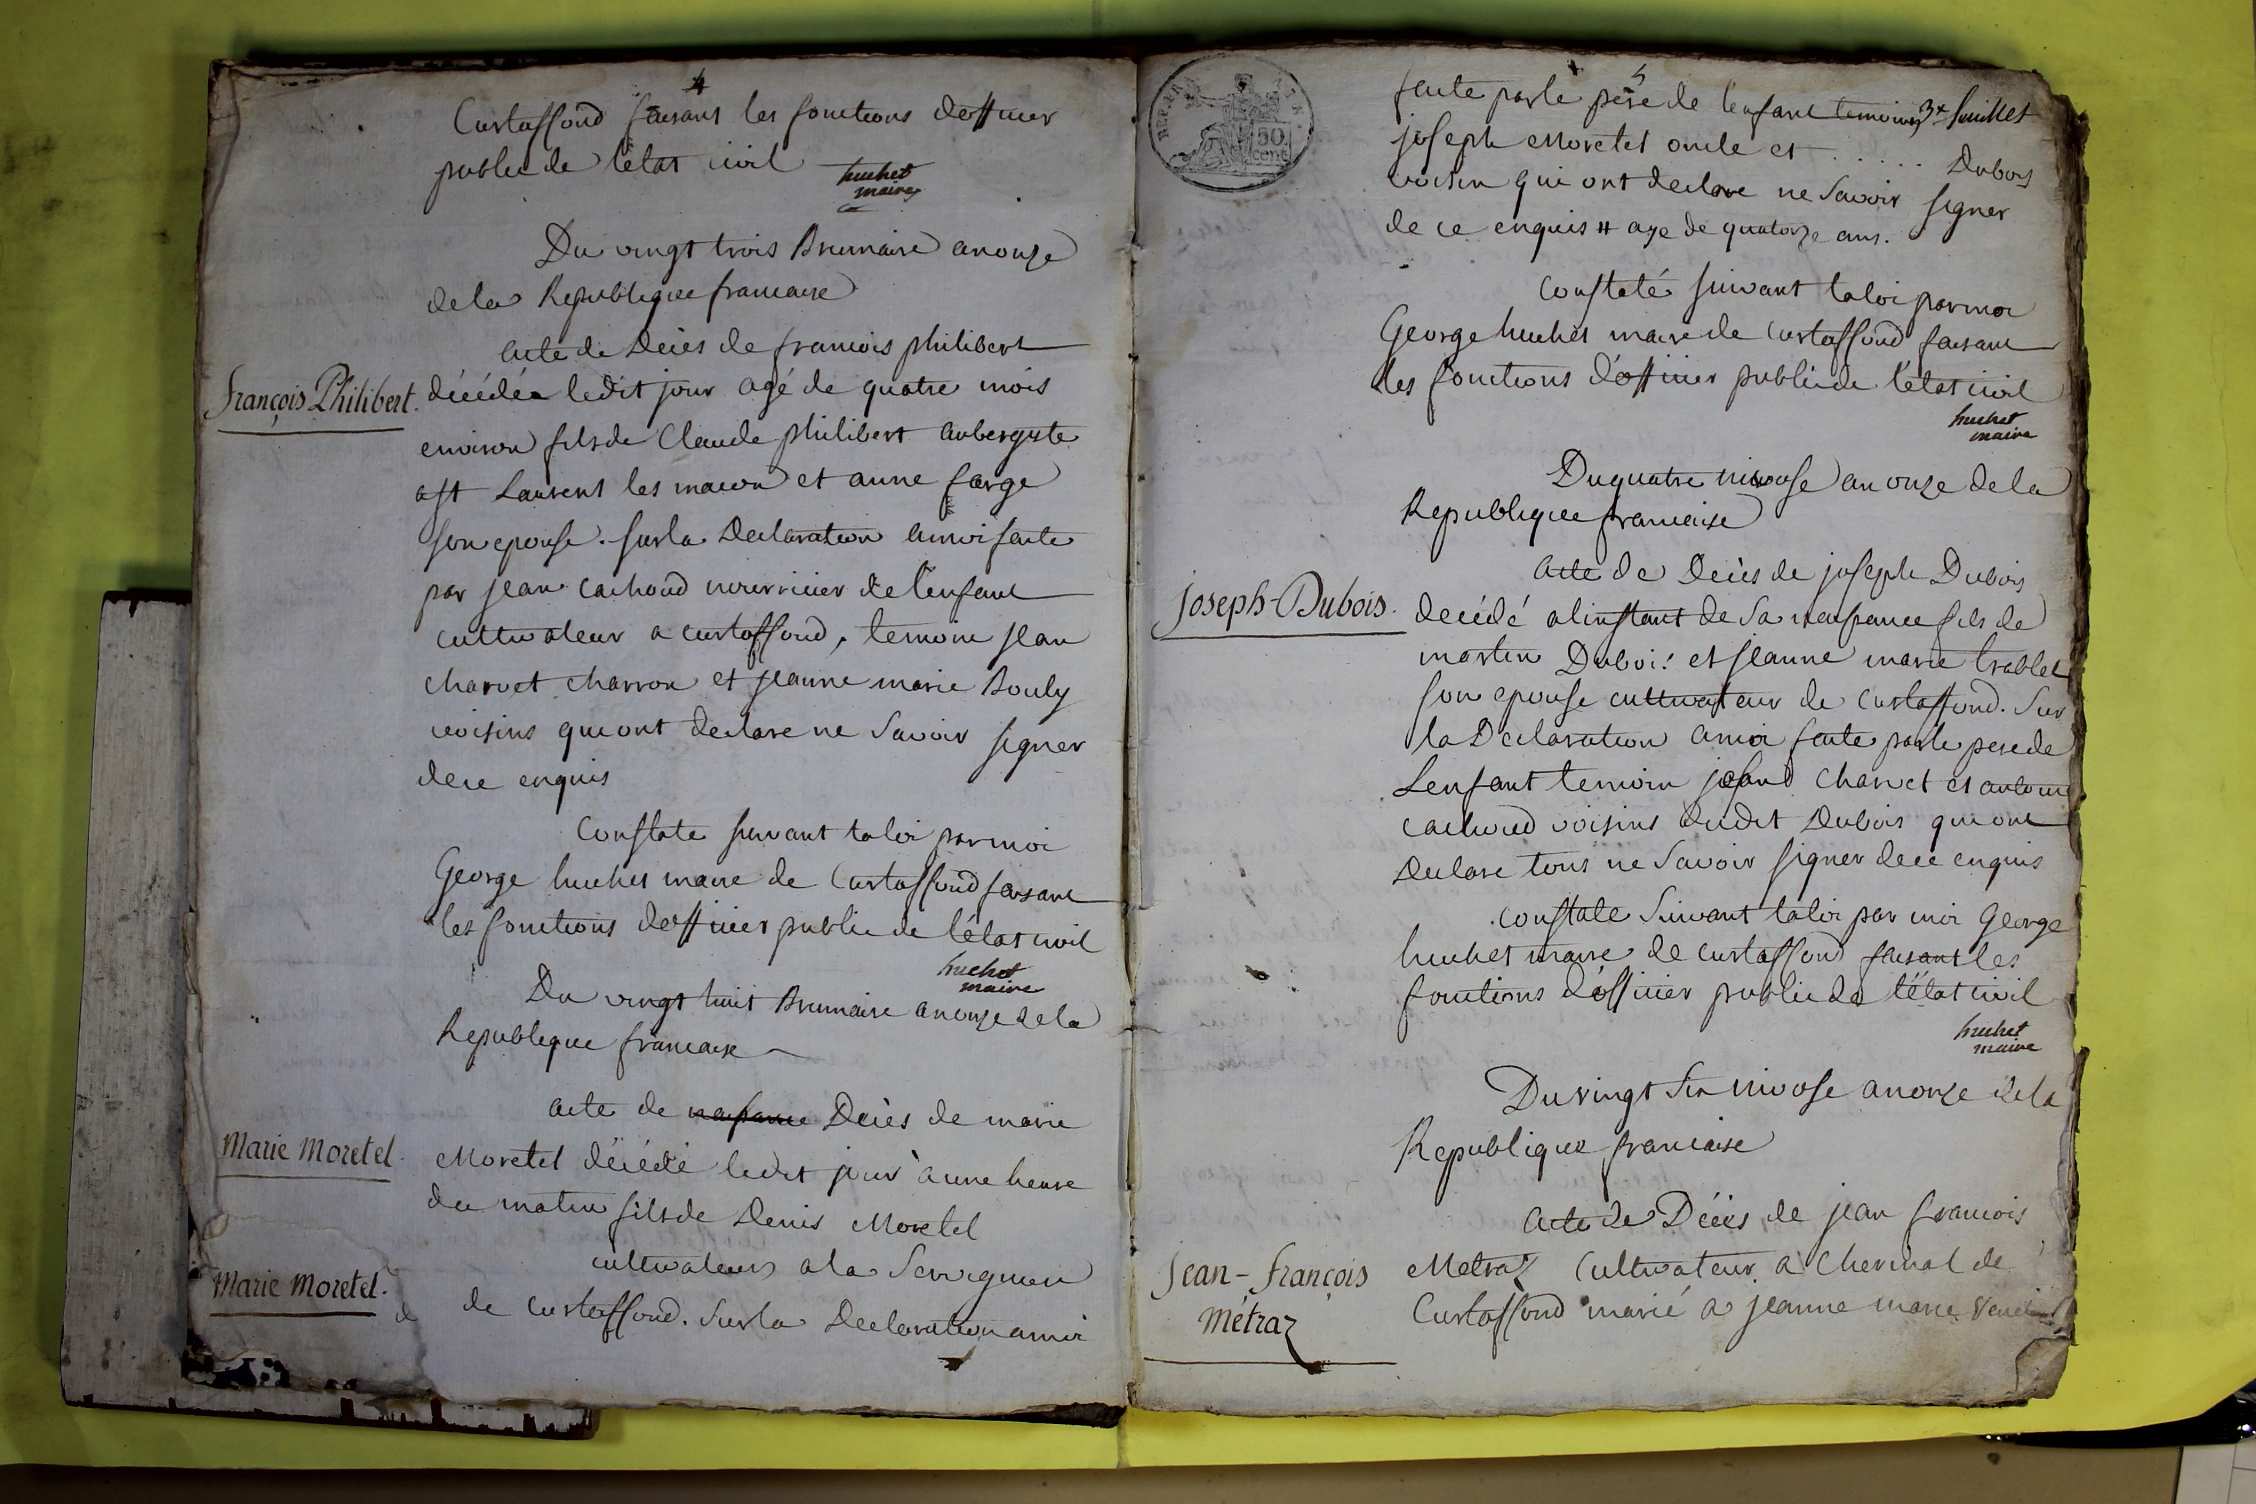 4
Curtaffond faisant les fonctions d'officier
public de l'état civil
huchet
maire
Du vingt trois Brumaire an onze
de la Republique francaise
acte de Décès de francois philibert
François Philibert.
décédé ledit jour agé de quatre mois
environ fils de Claude philibert aubergiste
a st Laurent les macon et anne farge
son epouse. sur la Declaration a moi faite
par jean cachoud nourricier de l'enfant
cultivateur a curtaffond, temoin jean
charvet charron et jeanne marie Bouly
voisins qui ont declare ne Savoir signer
de ce enquis
Constate suivant la loi par moi
George huchet maire de Curtaffond faisant
les fonctions d'officier public de l'état civil
huchet
maire
Du vingt huit Brumaire an onze de la
Republique francaise
acte de naissance Décès de marie
Marie Moretel.
Moretel décédé ledit jour a une heure
du matin fils de Denis Moretel
cultivateurs a la
Marie Moretel.
de curtaffond. Sur la Declaration a moi
5
REP. FRA.
50
cent
faite par le père de l'enfant temoins
3e feuillet
joseph Moretel oncle et ......
Dubois
voisin qui ont declare ne Savoir signer
de ce enquis # age de quatorze ans.
Constaté suivant la loi par moi
George huchet maire de curtaffond faisant
les fonctions d'officier public de l'état civil
huchet
maire
Du quatre nivose an onze de la
Republique francaise
acte de Décès de joseph Dubois
Joseph-Dubois.
decédé a l'instant de Sa naissance fils de
martin Dubois et jeanne marie trablet
son epouse cultivateur de Curtaffond. Sur
la Declaration a moi faite par le pere de
L'enfant temoin charvet et antoine
cachoud voisins dudit Dubois qui ont
Declare tous ne Savoir signer de ce enquis
constate Suivant la loi par moi George
huchet maire de curtaffond faisant les
fonctions d'officier public de l'état civil
huchet
maire
Du vingt Six nivose an onze de la
Republique francaise
Acte de Décès de jean francois
Jean-François
Métraz
Metraz Cultivateur a Cherinal de
Curtaffond marié a jeanne marie